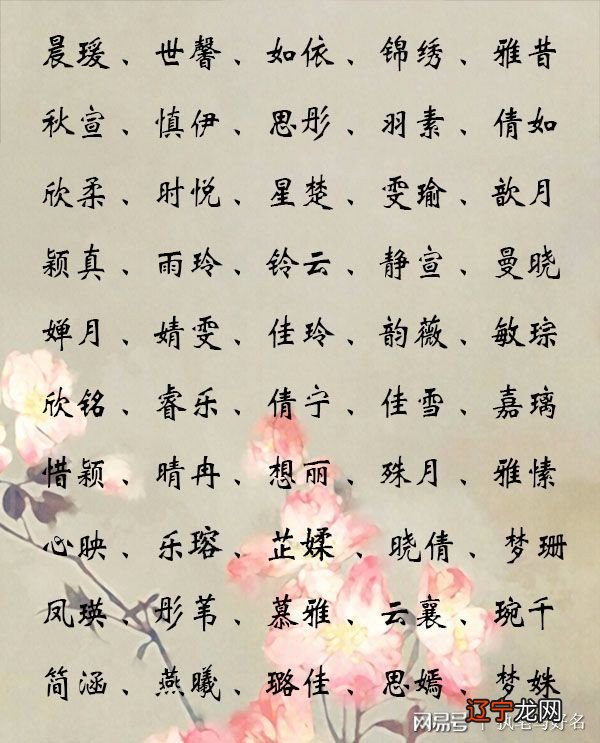 晨瑗、世馨、如依、锦绣、雅昔
秋宣、慎伊、思彤、羽素、倩如
欣柔、时悦、星楚、雯瑜、歆月
颖真、雨玲、铃云、静宣、曼晓
婵月、婧雯、佳玲、韵薇、敏琮
欣铭、睿乐、倩宁、佳雪、嘉璃
惜颖、晴冉、想丽、殊月、雅愫
心映、乐瑢、芷媃、晓倩、梦珊
凤瑛、彤苇、慕雅、云襄、琬千
简涵、燕曦、璐佳、思嫣、梦姝
网易号
辽宁龙网